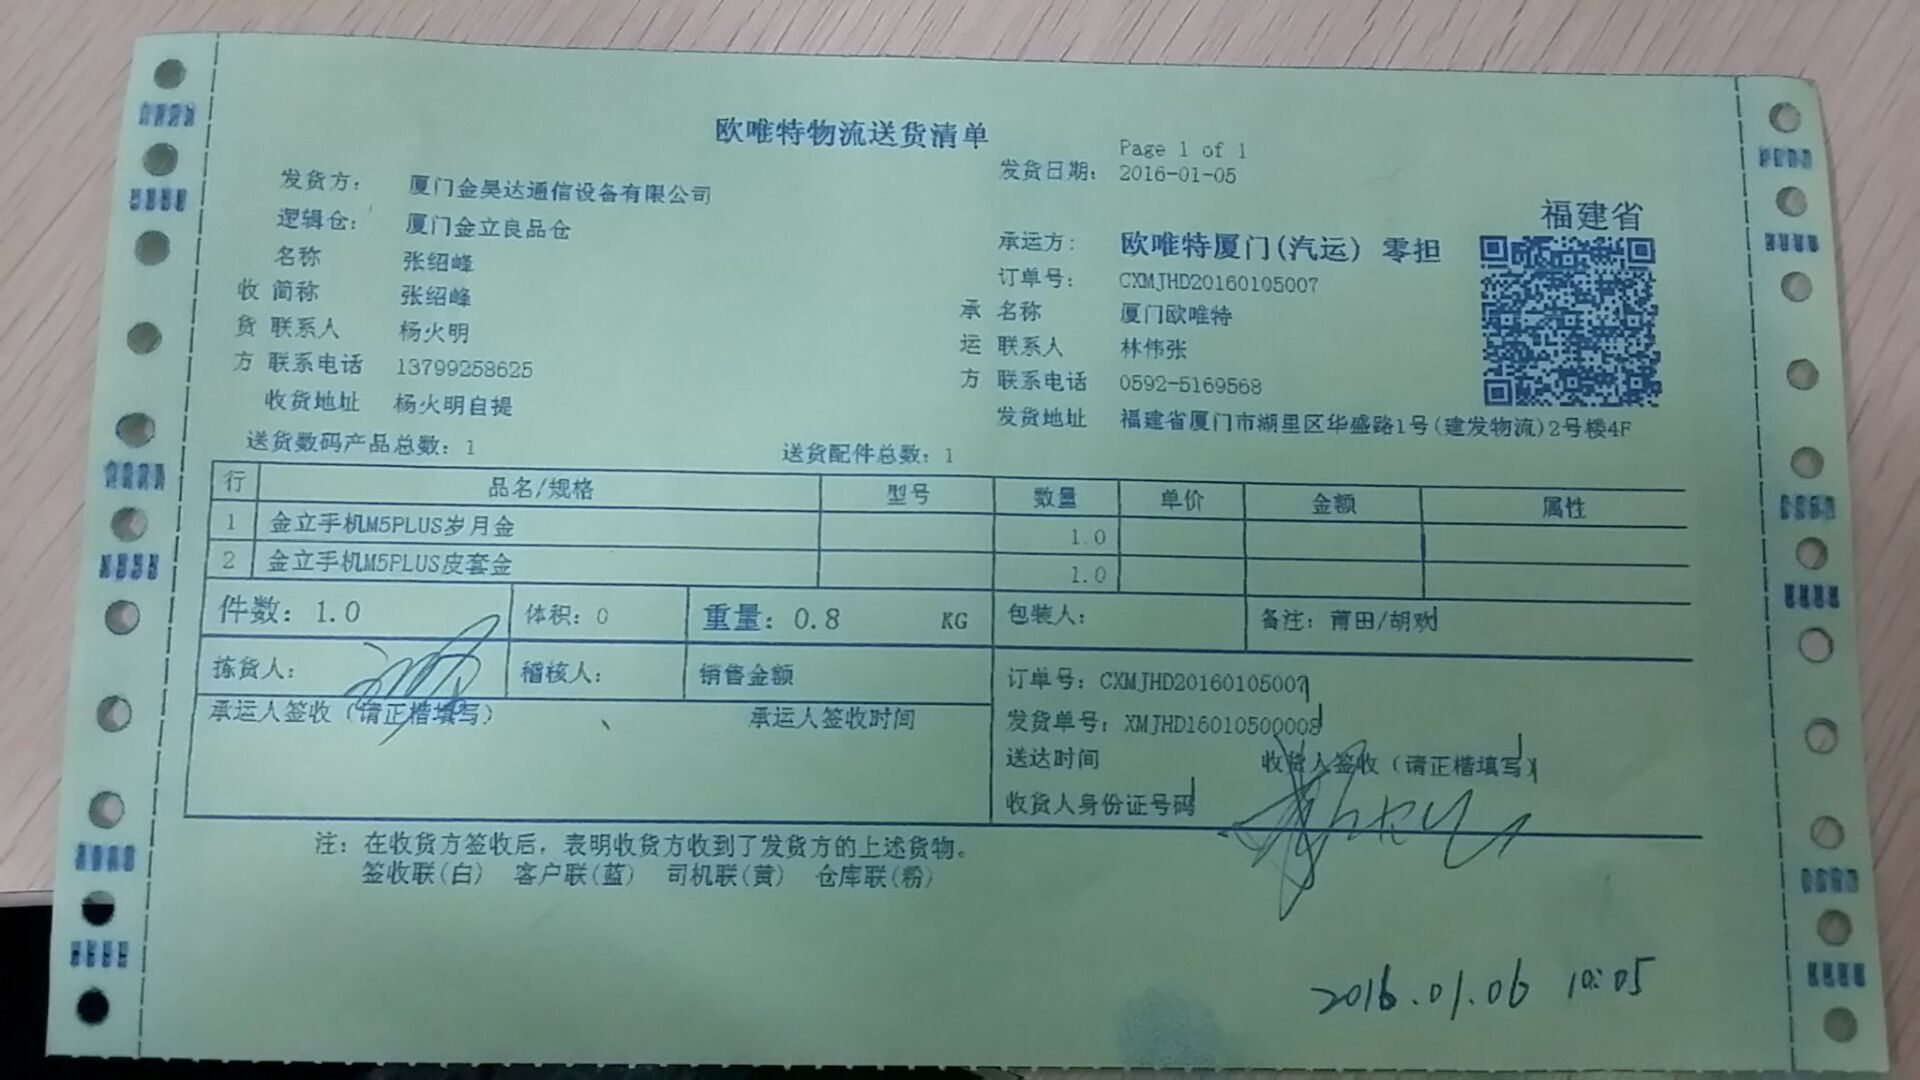 欧唯特物流送货清单
Page 1 of 1
发货日期: 2016-01-05
发货方: 厦门金昊达通信设备有限公司
逻辑仓: 厦门金立良品仓
名称 张绍峰
收 简称 张绍峰
货 联系人 杨火明
方 联系电话 13799258625
收货地址 杨火明自提
福建省
承运方: 欧唯特厦门(汽运) 零担
订单号: CXMJHD20160105007
承 名称 厦门欧唯特
运 联系人 林伟张
方 联系电话 0592-5169568
发货地址 福建省厦门市湖里区华盛路1号(建发物流)2号楼4F
送货数码产品总数: 1 送货配件总数: 1
行 品名/规格 型号 数量 单价 金额 属性
1 金立手机M5PLUS岁月金 1.0
2 金立手机M5PLUS皮套金 1.0
件数: 1.0 体积: 0 重量: 0.8 KG 包装人: 备注: 莆田/胡欢
拣货人: 稽核人: 销售金额
承运人签收 (请正楷填写) 承运人签收时间
订单号: CXMJHD20160105007
发货单号: XMJHD16010500008
送达时间 收货人签收 (请正楷填写)
收货人身份证号码
注: 在收货方签收后, 表明收货方收到了发货方的上述货物。
签收联(白) 客户联(蓝) 司机联(黄) 仓库联(粉)
2016.01.06 10:05